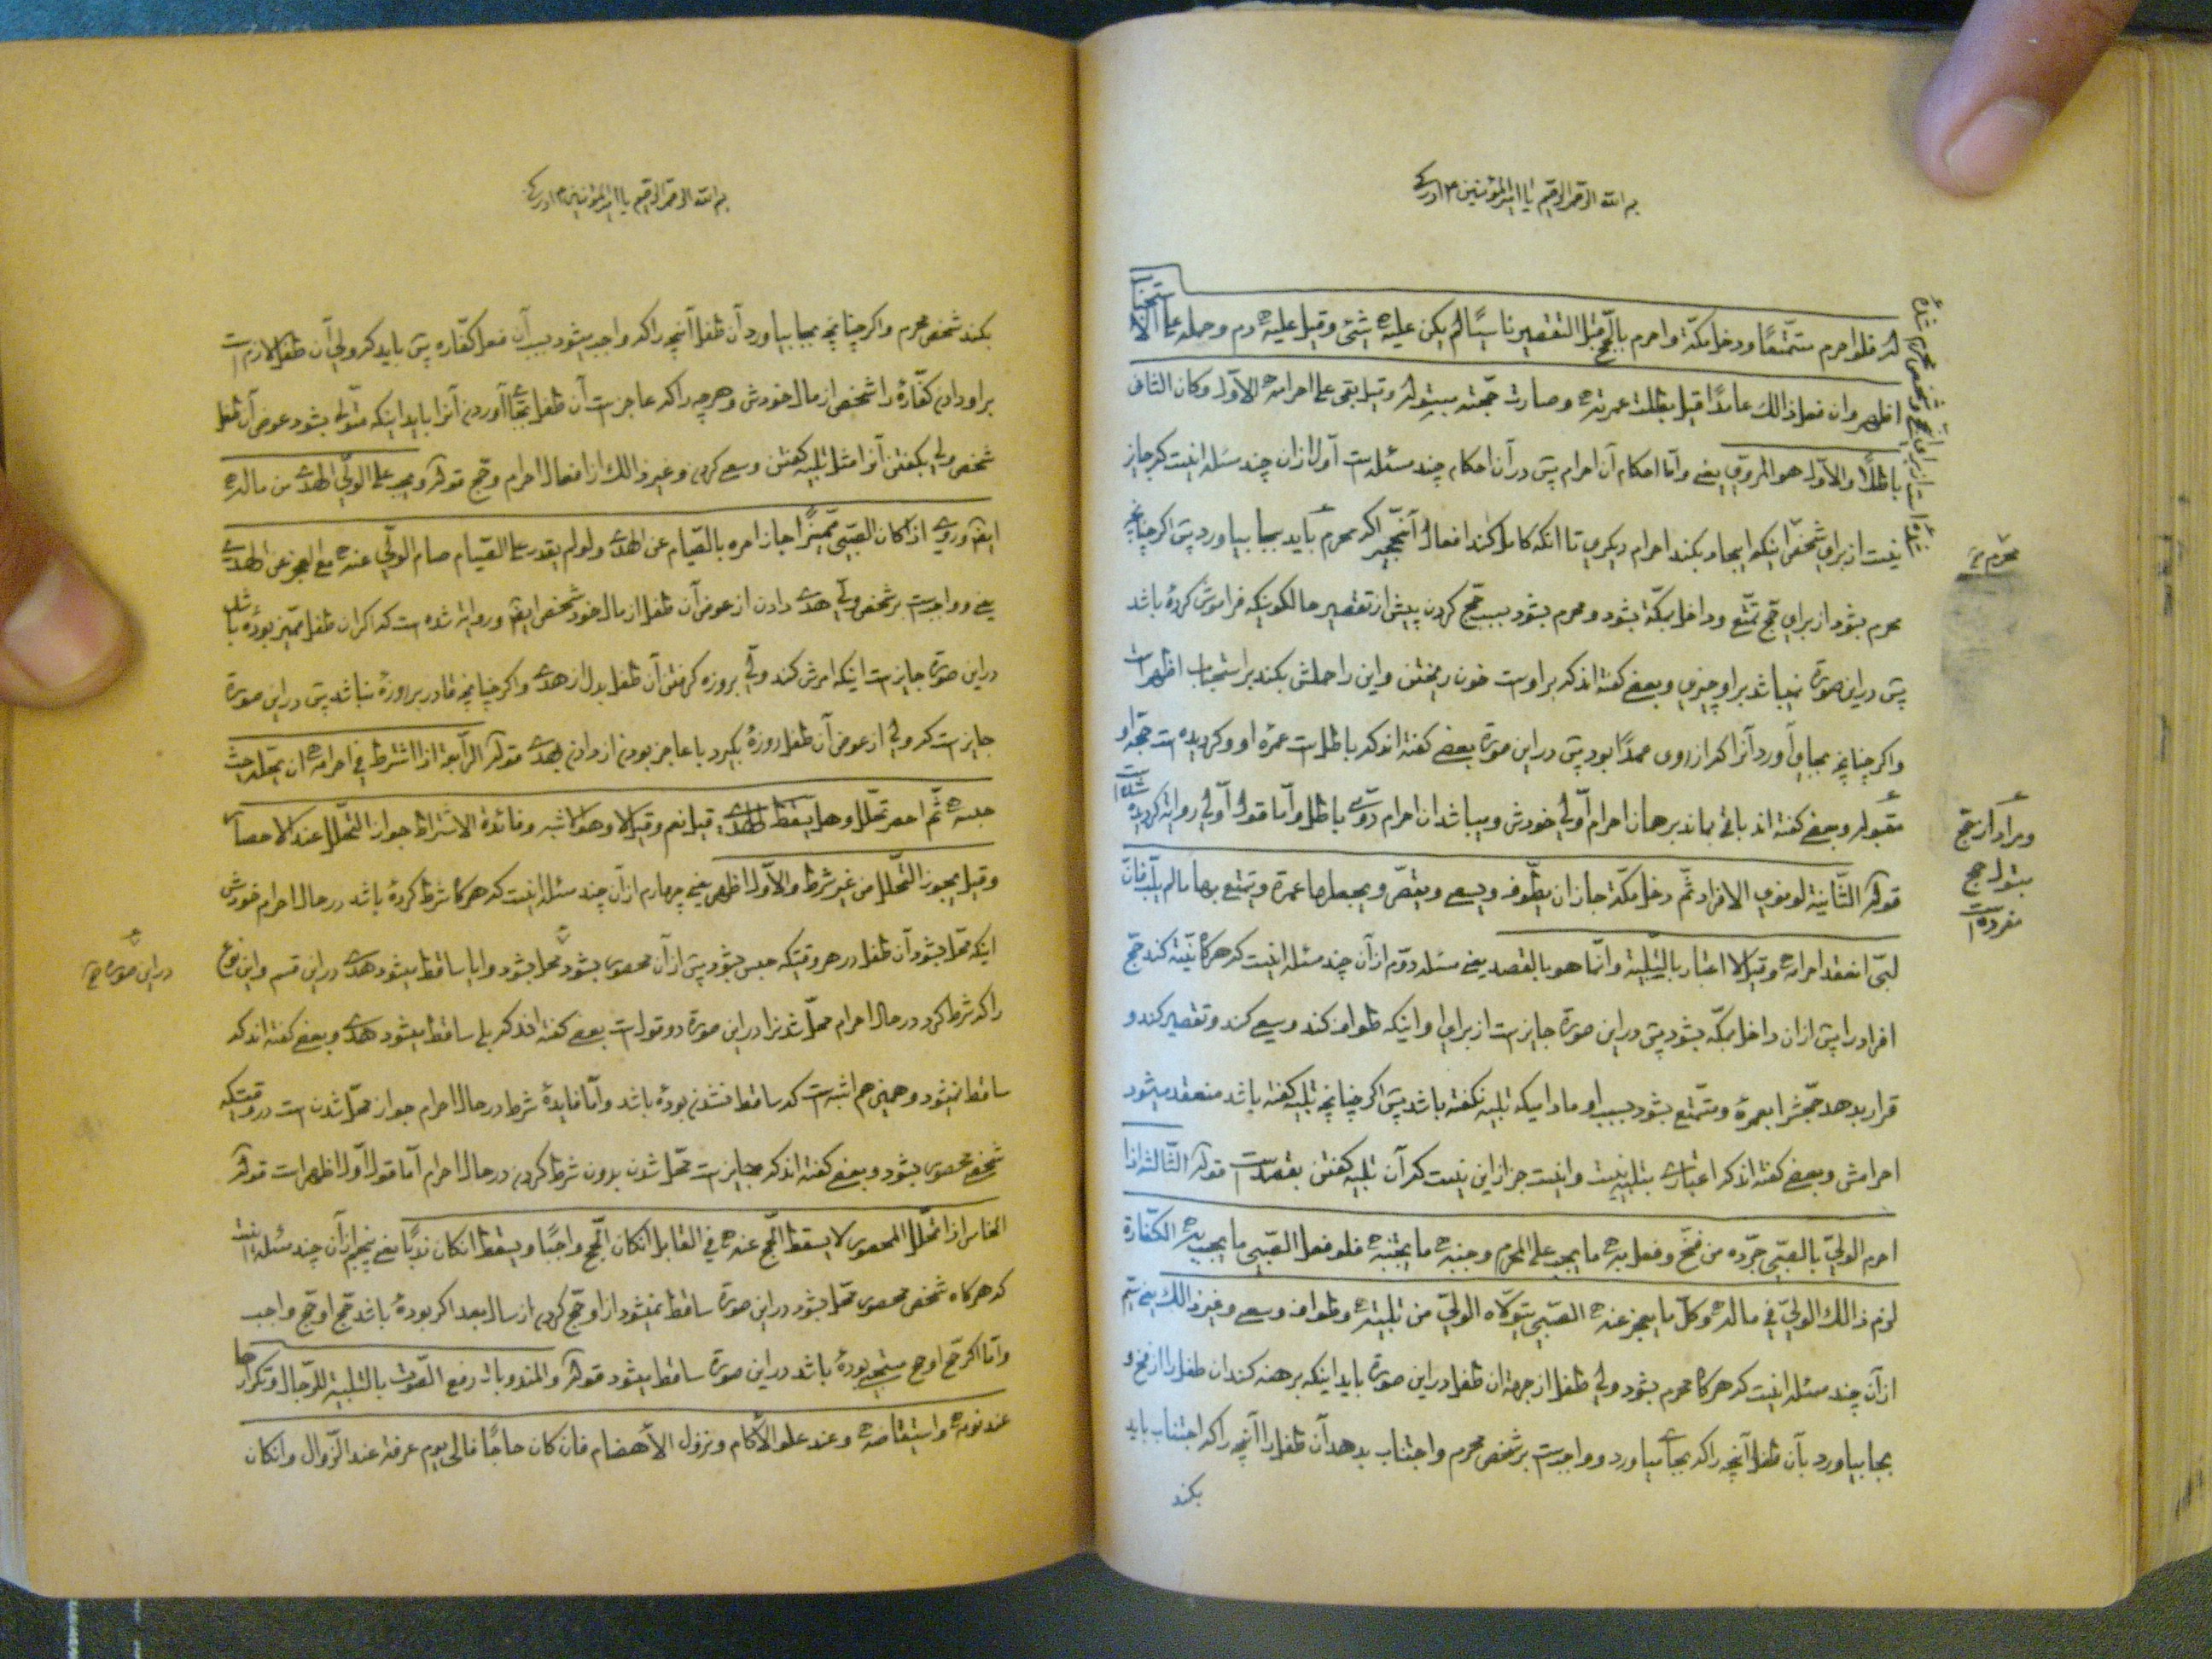 بم الله الرحمن الرحیم یا امیر المؤمنین ع ادرکنی
له فلو احرم متمّتعًا ودخل مکّة واحرم بالحّج قبل التقصیر ناسیًا لم یکن علیه شیئ وقیل علیه دم وحمله علی الاستحباب
اظهر وان فعل ذالك عامدًا قیل بطلت عمرته وصارت حجّته مبتوله وقیل بقی علی احرامه الاوّل وکان الثانی
باطلًا والاوّل هو المروی یعنی وامّا احکام آن احرام پس در آن احکام چند مسئله است اوّل ازان چند مسئله اینست که جایز
نیست از برای شخصی اینکه ایجاد بکند احرام دیگری تا انکه کامل کند افعال آنچیز که محرم باید بجا بیاورد پس اکر چنانچه
محرم بشود از برای حّج تمتّع وداخل بمکّه بشود ومحرم بشود بسبب حّج کردن پیش از تقصیر حالکونیکه فراموش کردهٔ باشد
پس دراین صورة نمیباشد بر او چیزی وبعضی کفته اند که بر اوست خون ریختن واین را حملش بکند بر استحباب اظهر است
واکر چنانچه بجا بیاورد آنرا که از روی عمدًا بود پس در این صورة بعضی کفته اند که باطل است عمرهٔ او وکردیده است حجّهٔ او
مقبوله وبعضی کفته اند باقی بماند بر همان احرام اوّلی خودش ومیباشد ان احرام دوّمی باطل وامّا قول اوّلی روایة کردیده شده است
قوله الثّانیة لو نوی الافراد ثّم دخل مکّة جاز ان یطّوف ویسعی ویقصّر ویجعلها عمرة ویتمتع بها مالم یلبّ فان
لبّی انعقد احرامه وقیل لا اعتبار بالتلبیة وانّما هو بالقصد یعنی مسئله دوّم از آن چند مسئله اینست که هرکاه نیّة کند حّج
افراد را پس ازان داخل بمکّه بشود پس دراین صورة جایز است از برای او اینکه طواف کند وسعی کند وتقصیر کند و
قرار بدهد حجّش را بعمرهٔ ومتمّتع بشود بسبب او مادامیکه تلبیه نکفته باشد پس اکر چنانچه تلبیه کفته باشد منعقد میشود
احرامش وبعضی کفته اند که اعتباری بتلبیه نیست واینست جز از این نیست که آن تلبیه کفتن بقصد است قوله الثّالثة اذا
احرم الولیّ بالصّبی جّرده من فخّ وفعل به ما یجب علی المحرم وجنبه ما یجتنبه فلو فعل الصّبی ما یجب به الکفّارة
لزم ذالك الولیّ فی ماله وکلّ ما یعجز عنه الصّبی یتوّلاه الولیّ من تلبیته وطواف وسعی وغیر ذالك یعنی سیّم
از آن چند مسئله اینست که هرکاه محرم بشود ولی طفل از جهة ان طفل دراین صورة باید اینکه برهنه کند ان طفل را از فخ و
بجا بیاورد بآن طفل آنچه را که بجا میاورد وواجبست بر شخص محرم واجتناب بدهد آن طفل را آنچه را که اجتناب باید
بکند
محرم
ومراد از حّج
مبتوله حج
مفرده است
بم الله الرحمن الرحیم یا امیر المؤمنین ع ادرکنی
بکند شخص محرم واکر چنانچه بجا بیاورد آن طفل آنچه را که واجب میشود بسبب آن فعل کفّاره پس باید که ولی آن طفل لازم است
بر او دادن کفّارهٔ را شخص از مال خودش وهرچه را که عاجز است آن طفل بجا آوردن آنرا باید اینکه متولی بشود عوض آن طفل
شخص ولی بکفتن آو مثل تلبیه کفتن وسعی کردن وغیر ذالك از افعال احرام وحّج قوله ویجب علی الولّی الهدی من ماله
ایضًا وروی اذا کان الصّبی ممّیزًا جاز امره بالصّیام عن الهدی ولو لم یقدر علی الصّیام صام الولّی عنه مع العجز عن الهدی
یعنی وواجبست بر شخص ولی هدی دادن از عوض آن طفل از مال خود شخص ایضًا وروایة شده است که اکر ان طفل ممّیز بودهٔ باشد
دراین صورة جایز است اینکه امرش کند ولی بروزه کرفتن آن طفل بدل از هدی واکر چنانچه قادر بر روزهٔ نباشد پس دراین صورة
جایز است که ولی از عوض آن طفل روزهٔ بکیرد با عاجز بودن از دادن هدی قوله الرّابعة اذا اشترط فی احرامه ان یحلّه حیث
حبسه ثّم احصر تحلّل وهل یسقط الهدی قیل نعم وقیل لا وهو الاشبه وفائدة الاشتراط جواز التّحلل عند الاحصار
وقیل یجوز التّحلل من غیر شرط والاوّل اظهر یعنی چهارم از آن چند مسئله اینست که هرکاه شرط کردهٔ باشد درحال احرام خودش
اینکه محّل بشود آن طفل در هر وقتیکه حبس بشود پس از آن محصور بشود محّل بشود وایا ساقط میشود هدی دراین قسم واین نوع
را که شرط کرد درحال احرام محلّ شدنرا دراین صورة دو قول است بعضی کفته اند که بلی ساقط میشود هدی وبعضی کفته اند که
ساقط نمیشود وهمین هم اشبه است که ساقط نشدن بودهٔ باشد وامّا فایدهٔ شرط درحال احرام جواز محّل شدن است در وقتیکه
شخص محصور بشود وبعضی کفته اند که جایز است محّل شدن بدون شرط کردن درحال احرام امّا قول اوّل اظهر است قوله
الخامس اذا تحلّل المحصور لا یسقط الحّج عنه فی القابل انکان الحّج واجبًا ویسقط انکان ندبًا یعنی پنجم از آن چند مسئله اینست
که هرکاه شخص محصور محّل بشود دراین صورة ساقط نمیشود از او حّج کردن از سال بعد اکر بودهٔ باشد حّج او حّج واجب
وامّا اکر حّج او حج مستحبی بودهٔ باشد دراین صورة ساقط میشود قوله والمندوبات رفع الصّوت بالتلبیة للرّجال وتکرارها
عند نومه واستیقاضه وعند علو الأکام ونزول الأهضام فان کان حاجًا فالی یوم عرفة عند الزّوال وانکان
دراین صورة